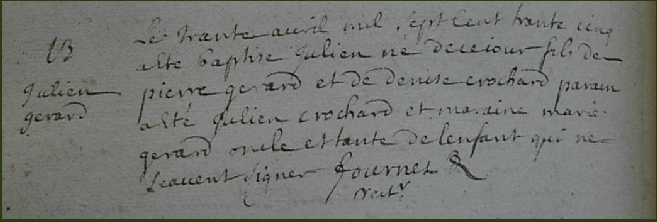 Le trante avril mil sept cent trante cinq
B
a esté baptisé Julien né de ce jour fils de
Julien
gerard
pierre gerard et de denise crochard parain
a esté Julien crochard et maraine marie
gerard oncle et tante de lenfant qui ne
scavent signer fournet
rectr